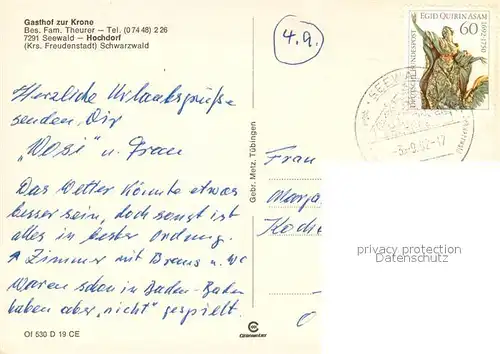 Gasthof zur Krone
Bes. Fam. Theurer — Tel. (0 74 48) 2 26
7291 Seewald — Hochdorf
(Krs. Freudenstadt) Schwarzwald
4.9.
EGID QUIRIN ASAM
1692-1750
60
DEUTSCHE BUNDESPOST
SEEWA
-6.-9.92-17
Herzliche Urlaubsgrüße
senden Dir
"Vosi" u. Frau
Das Wetter könnte etwas
besser sein, doch sonst ist
alles in bester Ordnung.
Zimmer mit Braus u. WC
Waren schon in Baden-Baden
haben aber "nicht" gespielt.
Gebr. Metz, Tübingen
Frau
Marga
Koch
privacy protection
Datenschutz
Of 530 D 19 CE